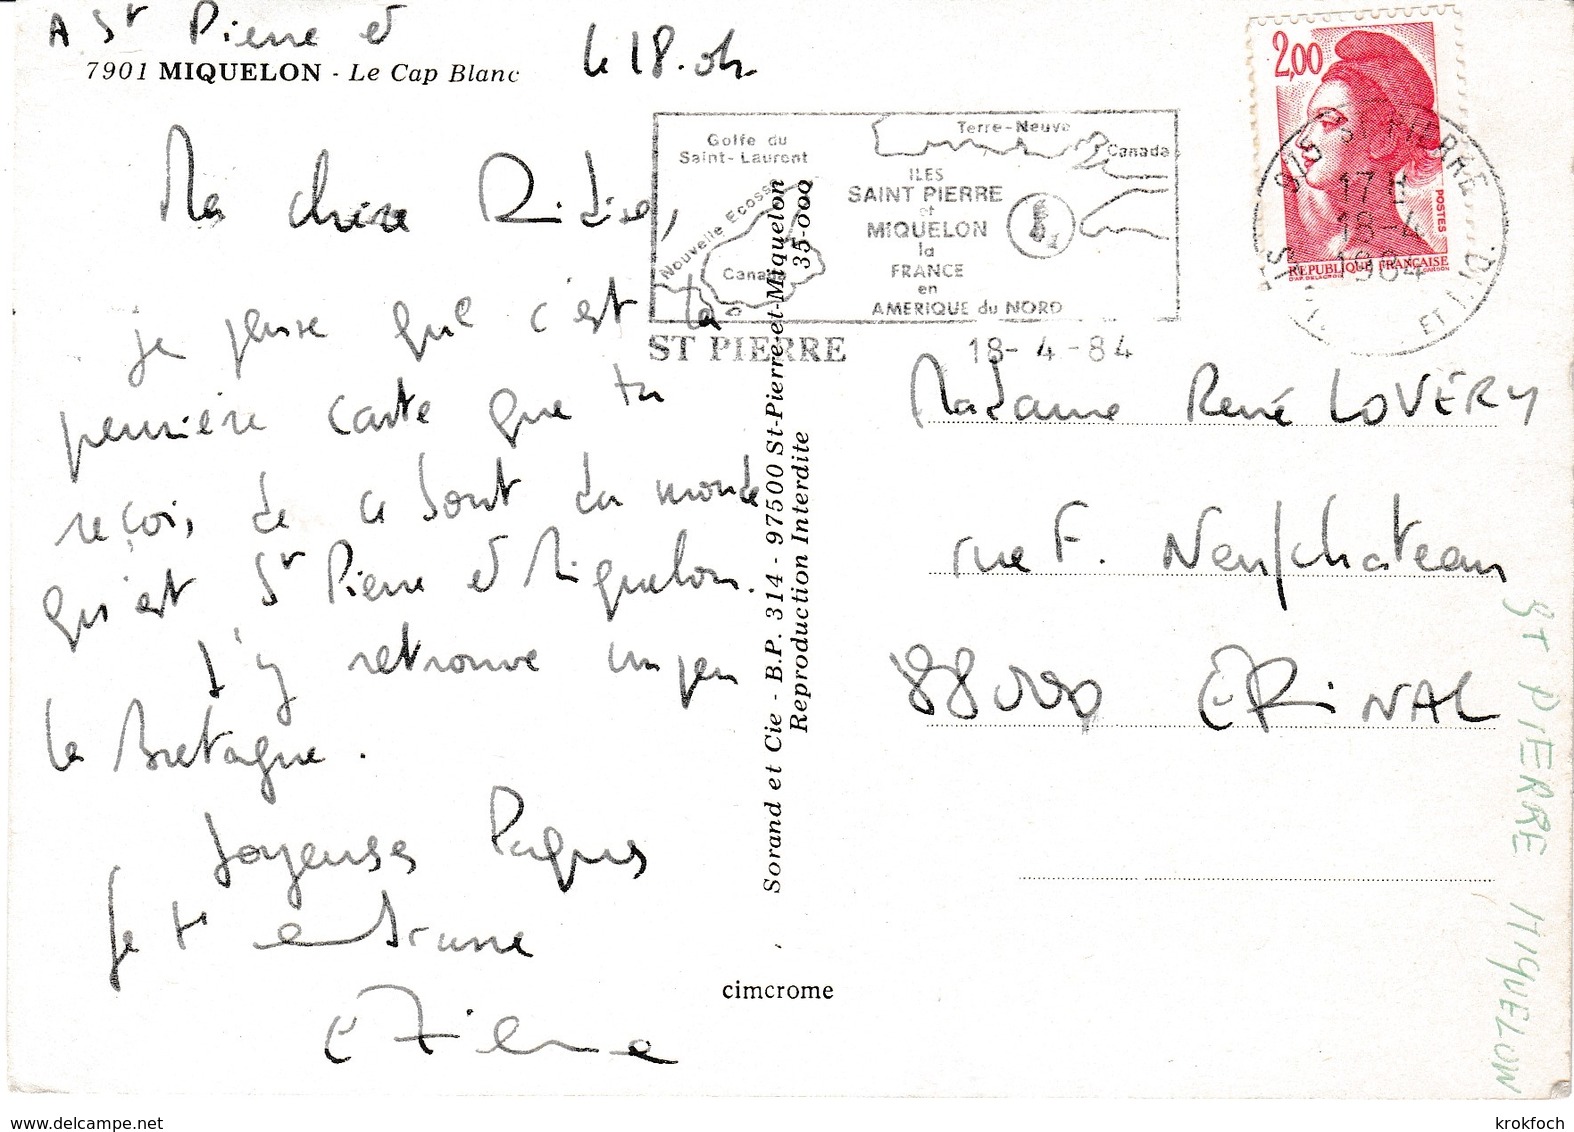 A St Pierre et
7901 MIQUELON - Le Cap Blanc
le 18.04
Ma chère
je pense que c'est la
première carte que tu
reçois de ce bout du monde
qu'est St Pierre et Miquelon.
J'y retrouve un peu
la Bretagne.
Joyeuses Paques
Je t'embrasse
Etienne
Golfe du
Saint-Laurent
Terre-Neuve
Canada
Nouvelle Ecosse
Canada
ILES
SAINT PIERRE
et
MIQUELON
la
FRANCE
en
AMERIQUE du NORD
ST PIERRE
18-4-84
2,00
POSTES
REPUBLIQUE FRANÇAISE
975 ST PIERRE
17 H
18-4
1984
ST PIERRE ET MIQUELON
Sorand et Cie - B.P. 314 - 97500 St-Pierre-et-Miquelon
Reproduction Interdite 35-000
cimcrome
Madame René LOVÉRY
rue F. Neufchateau
88000 EPINAL
ST PIERRE MIQUELON
www.delcampe.net
krokfoch